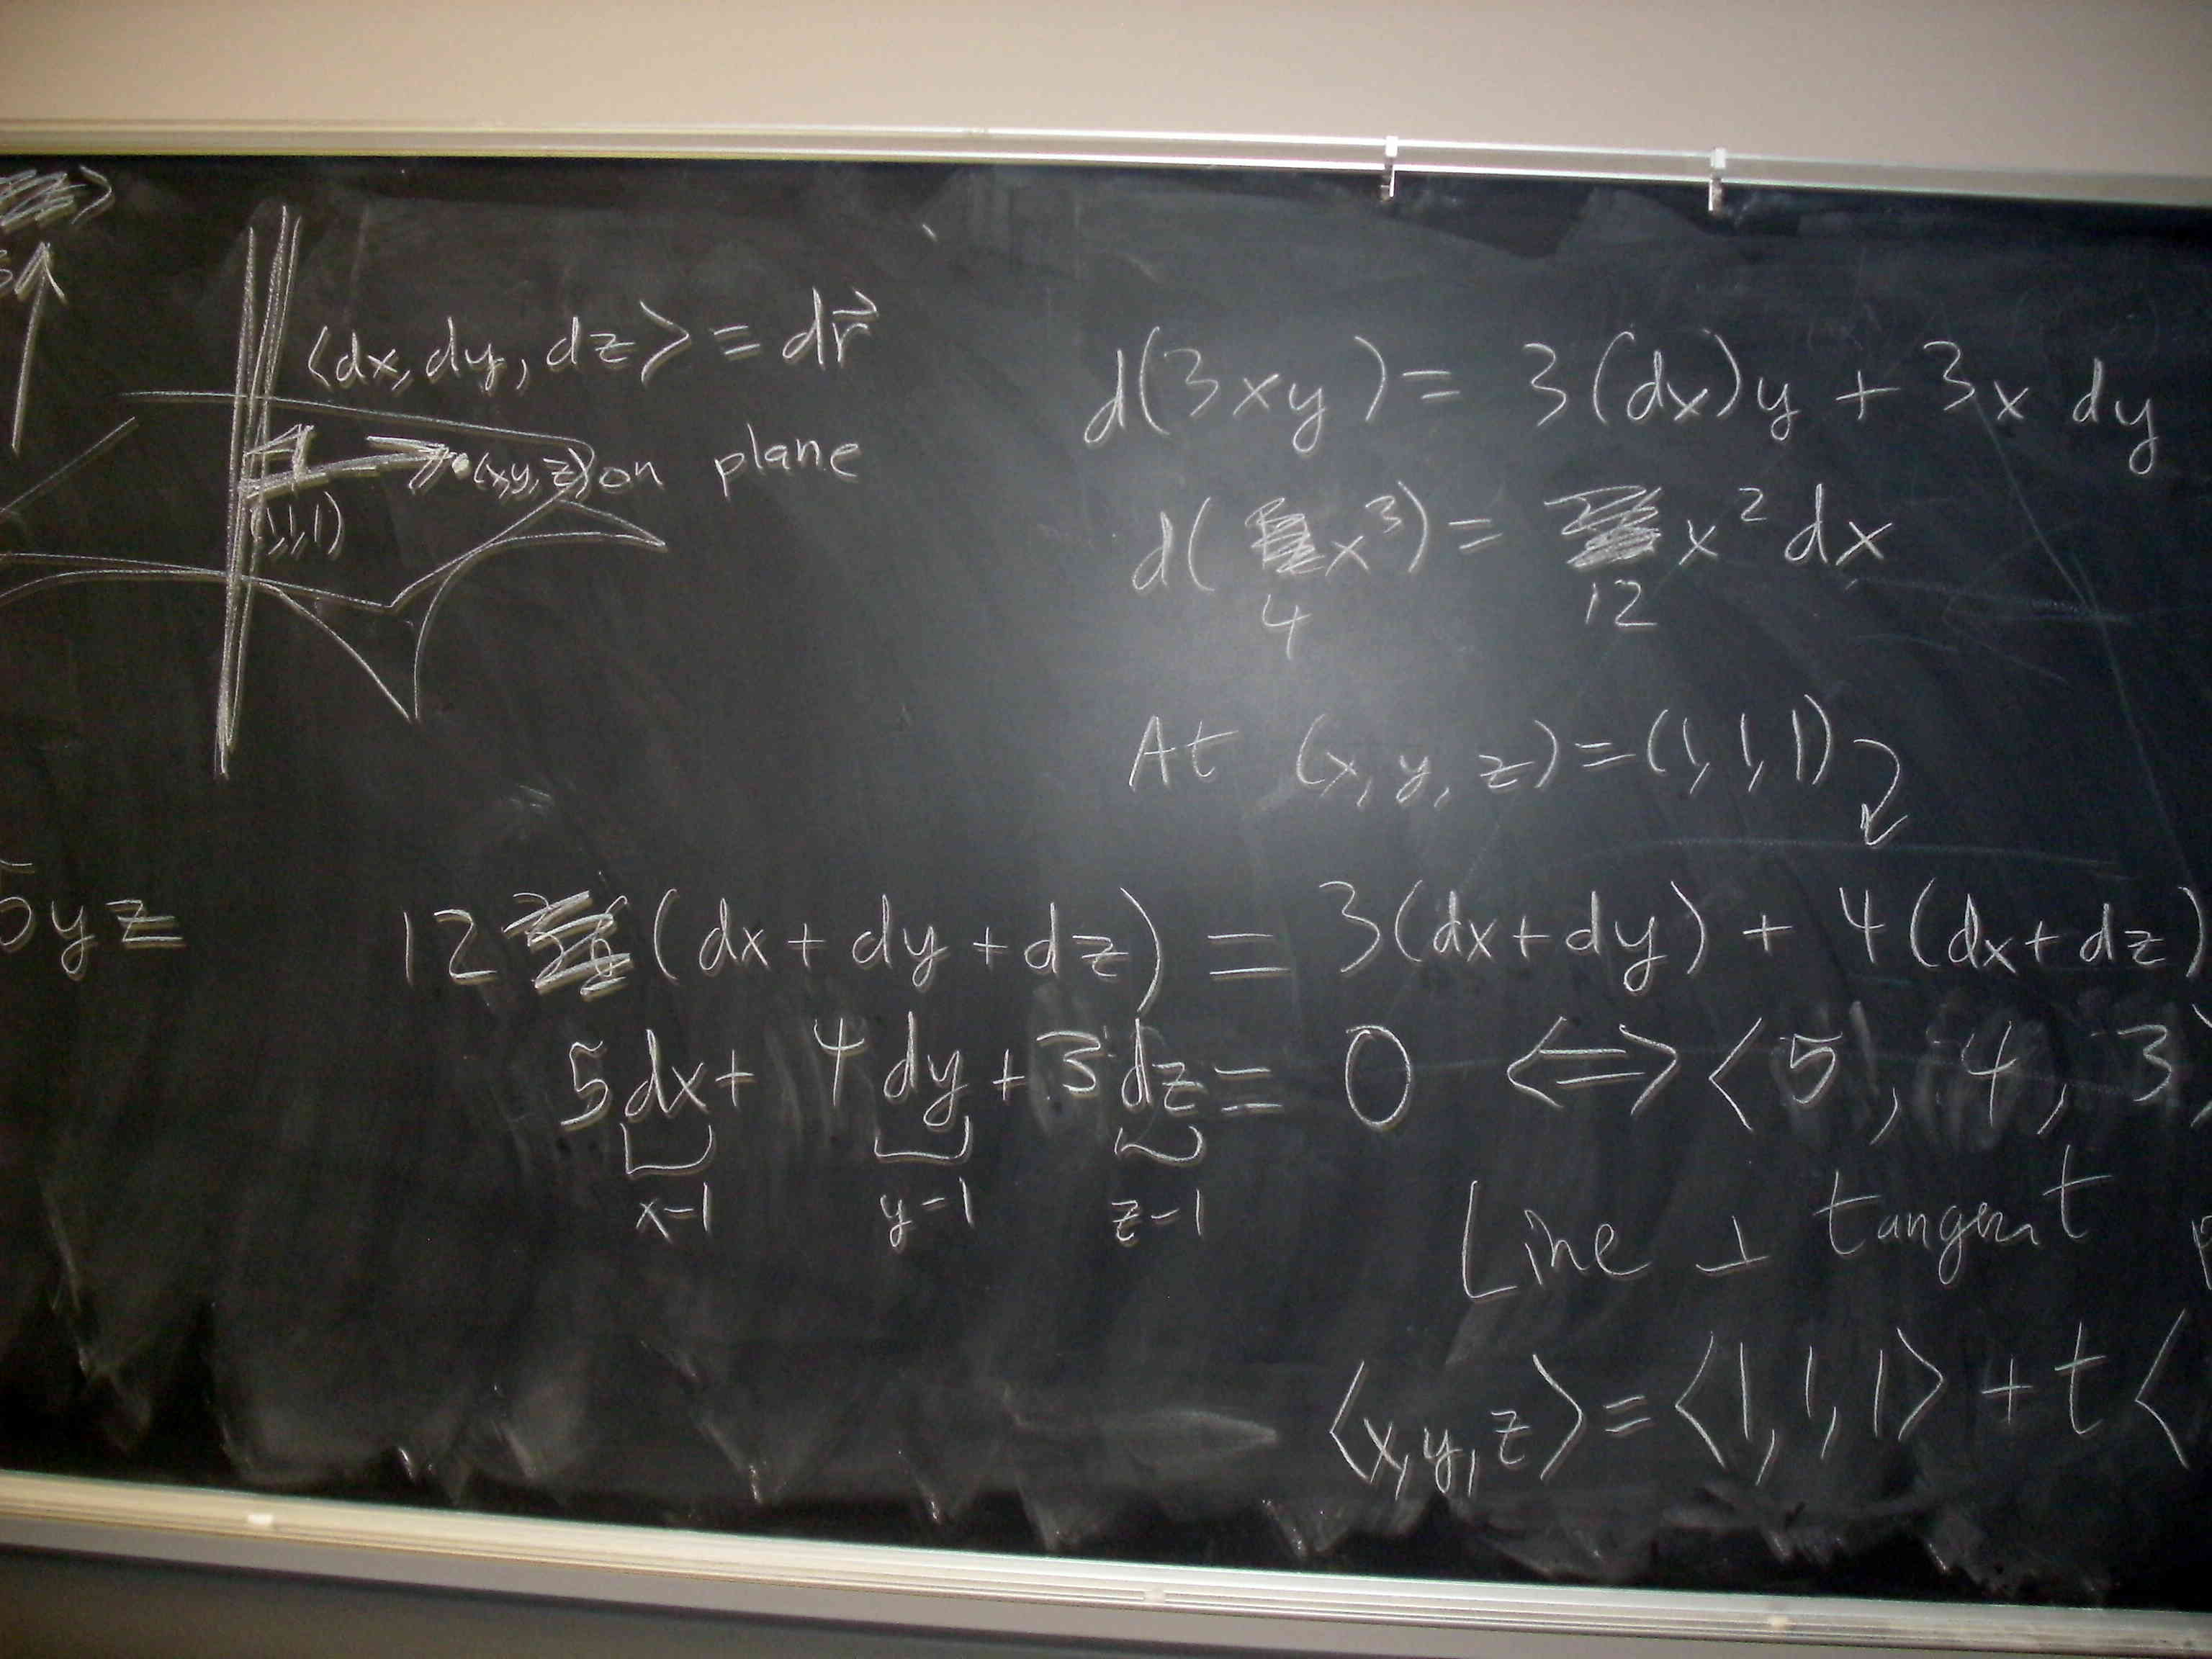 ⟨dx, dy, dz⟩ = dr⃗
(x,y,z) on plane
(1,1,1)
d(3xy) = 3(dx)y + 3x dy
d(4x³) = 12x² dx
At (x, y, z) = (1, 1, 1)
5yz
12(dx + dy + dz) = 3(dx + dy) + 4(dx + dz)
5dx + 4dy + 3dz = 0 ⟺ ⟨5, 4, 3⟩
x-1 y-1 z-1
Line ⊥ tangent
⟨x,y,z⟩ = ⟨1,1,1⟩ + t⟨